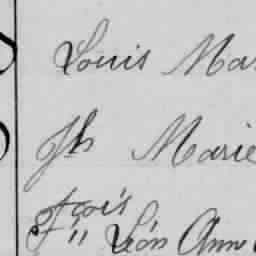 Louis Mar
Jh Marie
Fçois
F" Léon Ann